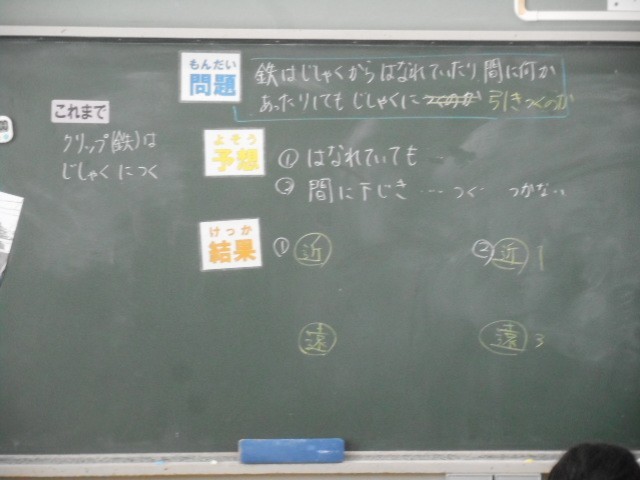 もんだい
問題
鉄はじしゃくからはなれていたり間に何か
あったりしてもじしゃくにつくのか引きつくのか
これまで
クリップ(鉄)は
じしゃくにつく
よそう
予想
①はなれていても
②間に下じき…つく つかない
けっか
結果
①近
②近 1
遠
遠 3